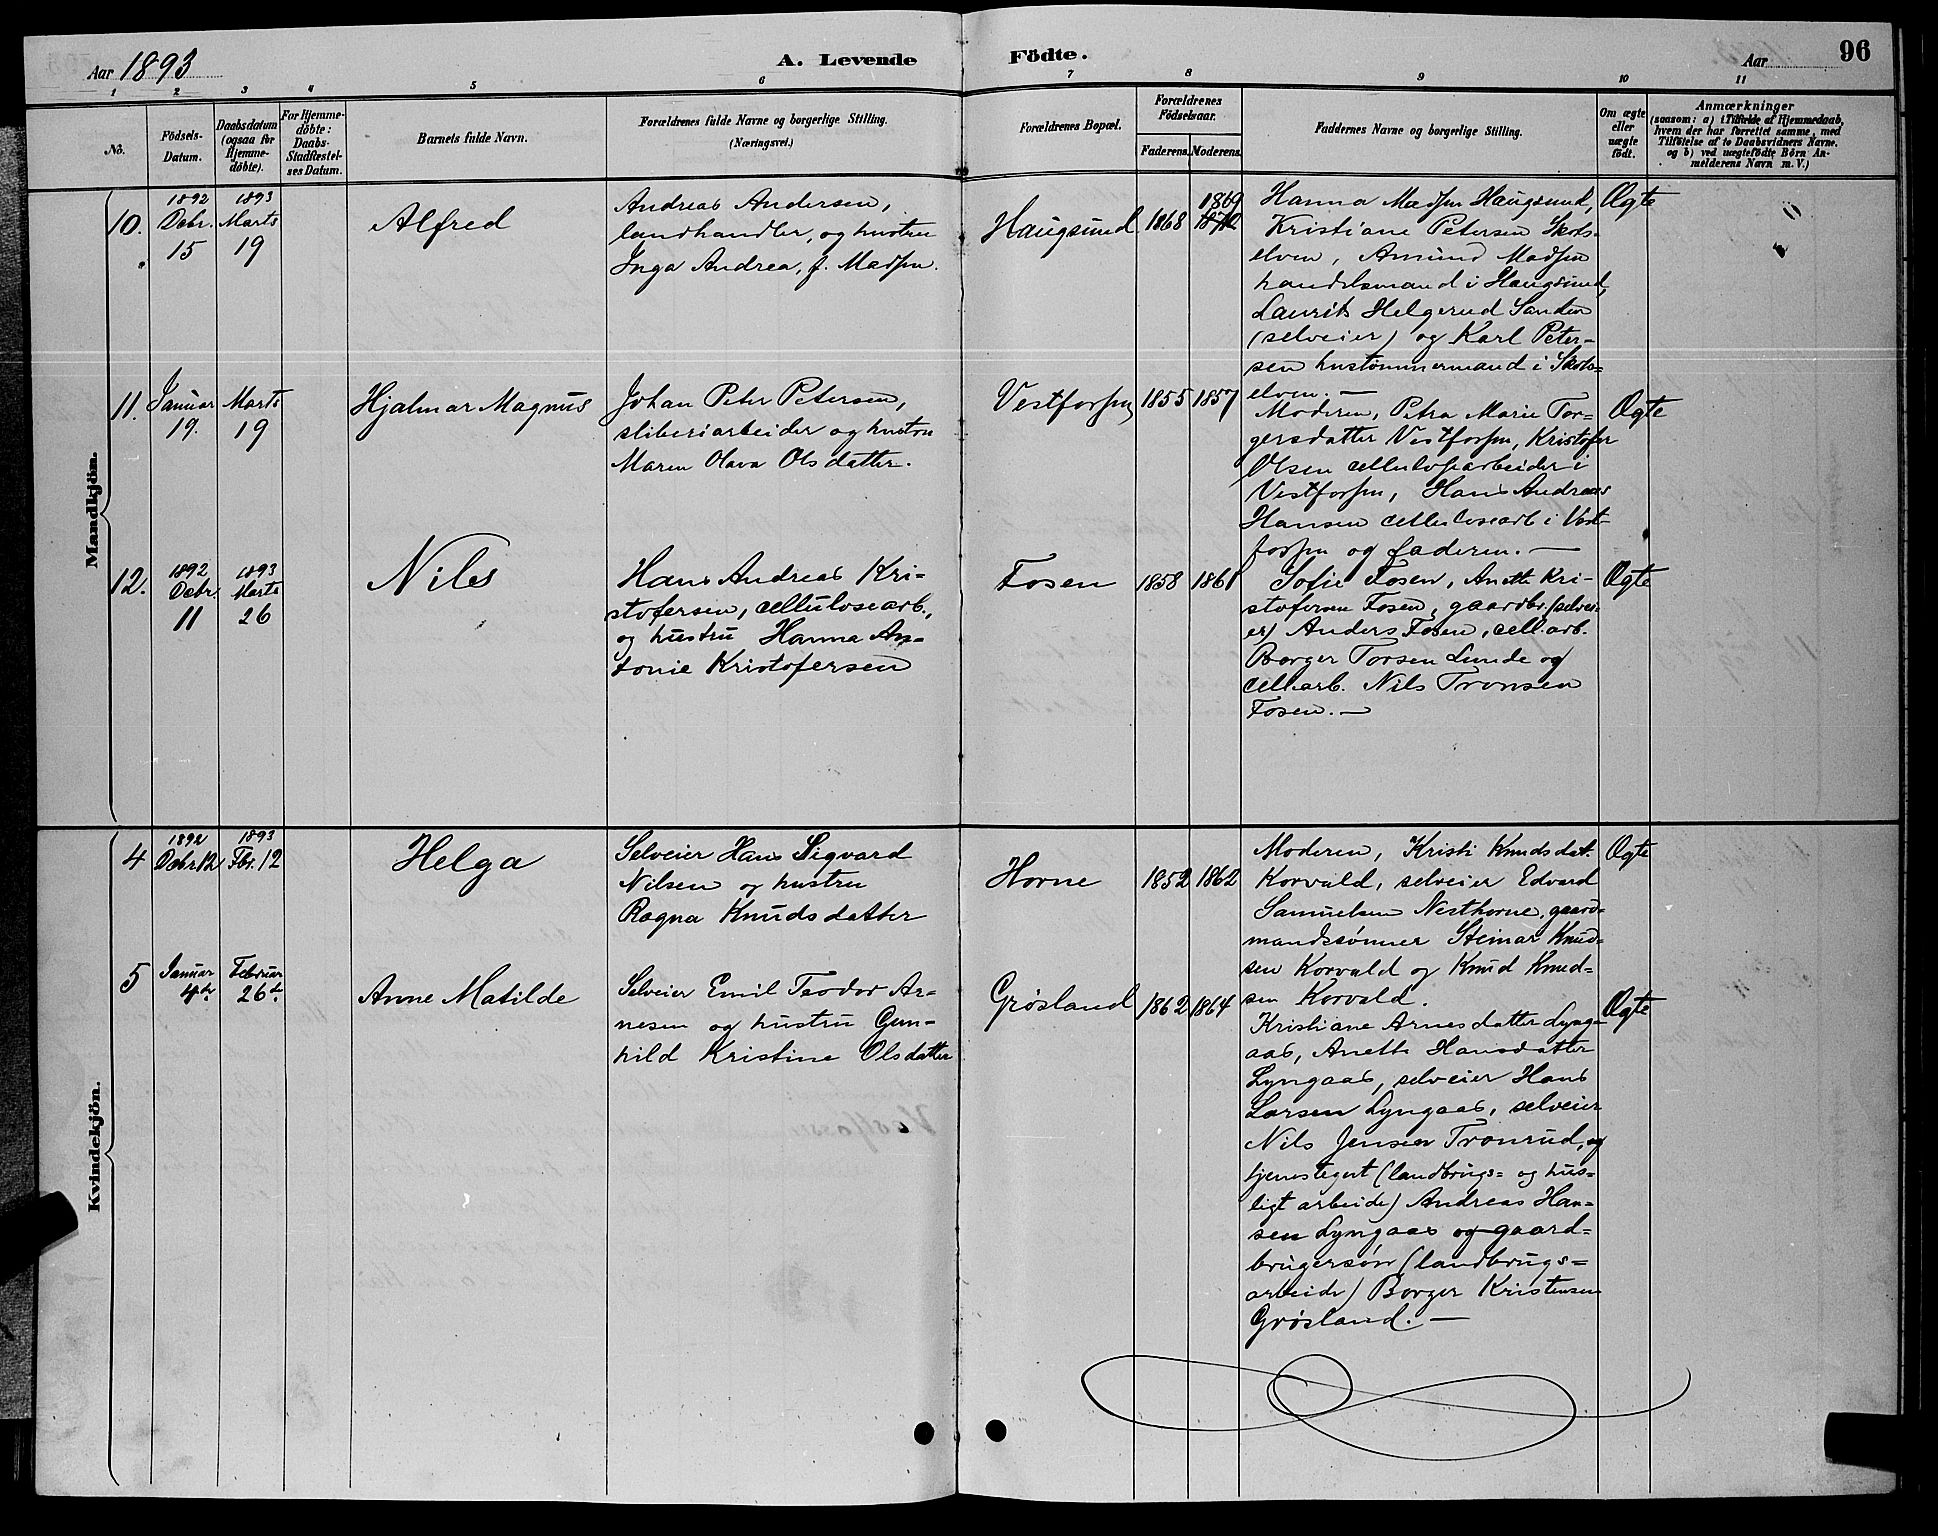 Aar 1893
A. Levende Födte.
Aar
96
1 2 3 4 5 6 7 8 9 10 11
No.
Födsels-
Datum.
Daabsdatum
(ogsaa for
Hjemme-
döbte).
For Hjemme-
döbte:
Daabs-
Stadfæstel-
ses Datum.
Barnets fulde Navn.
Forældrenes fulde Navne og borgerlige Stilling.
(Næringsvei.)
Forældrenes Bopæl.
Forældrenes
Födselsaar.
Faderens. Moderens.
Faddernes Navne og borgerlige Stilling.
Om ægte
eller
uægte
födt.
Anmærkninger
(saasom: a) i Tilfælde af Hjemmedaab,
hvem der har forrettet samme, med
Tilföielse af to Daabsvidners Navne.
og b) ved uægtefödte Börn An-
melderens Navn m. V.)
Mandkjön.
10.
1892
Decbr.
15
1893
Marts
19
Alfred
Andreas Andersen,
landhandler, og hustru
Inga Andrea, f. Madsen.
Haugsund
1868
1869
1872
Hanna Madsen Haugsund,
Kristiane Petersen Skots-
elven, Amund Madsen
handelsmand i Haugsund,
Laurits Helgerud Sanden
(selveier) og Karl Peter-
sen hustømmermand i Skots-
elven. —
Ægte
11.
Januar
19.
Marts
19
Hjalmar Magnus
Johan Peter Petersen,
sliberiarbeider og hustru
Maren Olava Olsdatter.
Vestfossen
1855 1857
Moderen, Petra Marie Tor-
gersdatter Vestfossen, Kristofer
Olsen cellulosearbeider i
Vestfossen, Hans Andreas
Hansen cellulosearb i Vest-
fossen og faderen. —
Ægte
12.
1892
Decbr.
11
1893
Marts
26
Nils
Hans Andreas Kri-
stofersen, cellulosearb.,
og hustru Hanna An-
tonie Kristofersen
Fosen
1858 1861
Sofie Fosen, Anette Kri-
stofersen Fosen, gaardbr. (selvei-
er) Anders Fosen, cell.arb.
Borger Torsen Lunde og
cell.arb. Nils Tronsen
Fosen. —
Ægte
Kvindekjön.
4
1892
Decbr 12
1893
Fbr. 12
Helga
Selveier Hans Sigvard
Nilsen og hustru
Ragna Knudsdatter
Horne
1852 1862
Moderen, Kristi Knudsdat.
Korvald, selveier Edvard
Samuelsen Nesthorne, gaard-
mandssønner Steinar Knud-
sen Korvald og Knud Knud-
sen Korvald.
Ægte
5
Januar
4de.
Februar
26de.
Anne Matilde
Selveier Emil Teodor Ar-
nesen og hustru Gun-
hild Kristine Olsdatter
Grøsland
1862 1864
Kristiane Arnesdatter Lyng-
aas, Anette Hansdatter
Lyngaas, selveier Hans
Larsen Lyngaas, selveier
Nils Jensen Tronrud, og
tjenestegut (landbrugs- og hus-
ligt arbeide) Andreas Han-
sen Lyngaas og gaard-
brugersøn (landbrugs-
arbeide) Borger Kristensen
Grøsland. —
Ægte